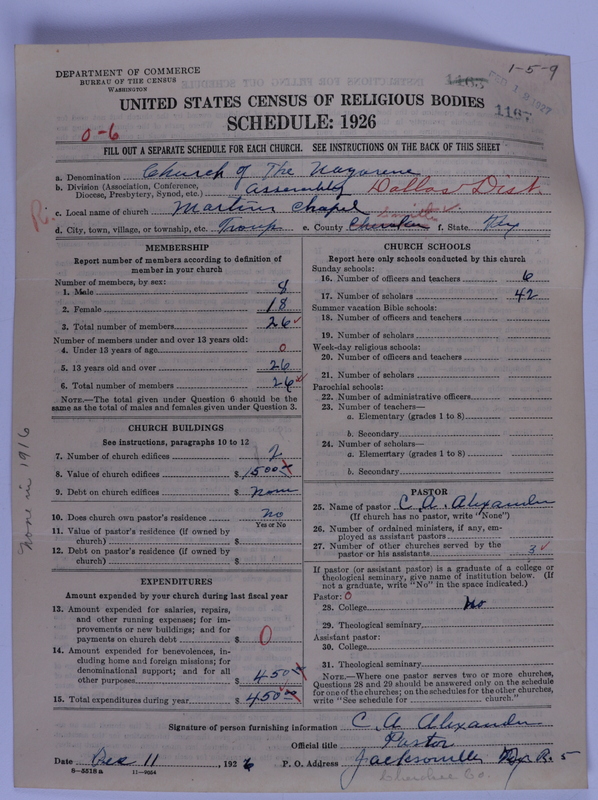 1-5-9
DEPARTMENT OF COMMERCE
BUREAU OF THE CENSUS
WASHINGTON
1167
FEB 18 1927
1167
UNITED STATES CENSUS OF RELIGIOUS BODIES
SCHEDULE: 1926
0-6
FILL OUT A SEPARATE SCHEDULE FOR EACH CHURCH. SEE INSTRUCTIONS ON THE BACK OF THIS SHEET
a. Denomination Church of The Nazarene
b. Division (Association, Conference, Diocese, Presbytery, Synod, etc.) assembly Dallas Dist.
R.
c. Local name of church Martins Chapel
d. City, town, village, or township, etc. Troup e. County Cherokee f. State Tex
MEMBERSHIP
Report number of members according to definition of
member in your church
Number of members, by sex:
1. Male 8
2. Female 18
3. Total number of members 26
Number of members under and over 13 years old:
4. Under 13 years of age 0
5. 13 years old and over 26
6. Total number of members 26
NOTE.—The total given under Question 6 should be the
same as the total of males and females given under Question 3.
CHURCH BUILDINGS
See instructions, paragraphs 10 to 12
7. Number of church edifices 2
8. Value of church edifices $ 1500
9. Debt on church edifices $ None
10. Does church own pastor's residence No
Yes or No
11. Value of pastor's residence (if owned by
church) $
12. Debt on pastor's residence (if owned by
church) $
none in 1916
EXPENDITURES
Amount expended by your church during last fiscal year
13. Amount expended for salaries, repairs,
and other running expenses; for im-
provements or new buildings; and for
payments on church debt $ 0
14. Amount expended for benevolences, in-
cluding home and foreign missions; for
denominational support; and for all
other purposes $ 450
15. Total expenditures during year $ 450
CHURCH SCHOOLS
Report here only schools conducted by this church
Sunday schools:
16. Number of officers and teachers 6
17. Number of scholars 42
Summer vacation Bible schools:
18. Number of officers and teachers
19. Number of scholars
Week-day religious schools:
20. Number of officers and teachers
21. Number of scholars
Parochial schools:
22. Number of administrative officers
23. Number of teachers—
a. Elementary (grades 1 to 8)
b. Secondary
24. Number of scholars—
a. Elementary (grades 1 to 8)
b. Secondary
PASTOR
25. Name of pastor C. A. Alexander
(If church has no pastor, write "None")
26. Number of ordained ministers, if any, em-
ployed as assistant pastors
27. Number of other churches served by the
pastor or his assistants 3
If pastor (or assistant pastor) is a graduate of a college or
theological seminary, give name of institution below. (If
not a graduate, write "No" in the space indicated.)
Pastor: 0
28. College No
29. Theological seminary
Assistant pastor:
30. College
31. Theological seminary
NOTE.—Where one pastor serves two or more churches,
Questions 28 and 29 should be answered only on the schedule
for one of the churches; on the schedules for the other churches,
write "See schedule for church."
Signature of person furnishing information C. A. Alexander
Official title Pastor
Date Dec 11, 1926 P. O. Address Jacksonville Tex R. 5
8-5518a 11-9054
Cherokee Co.